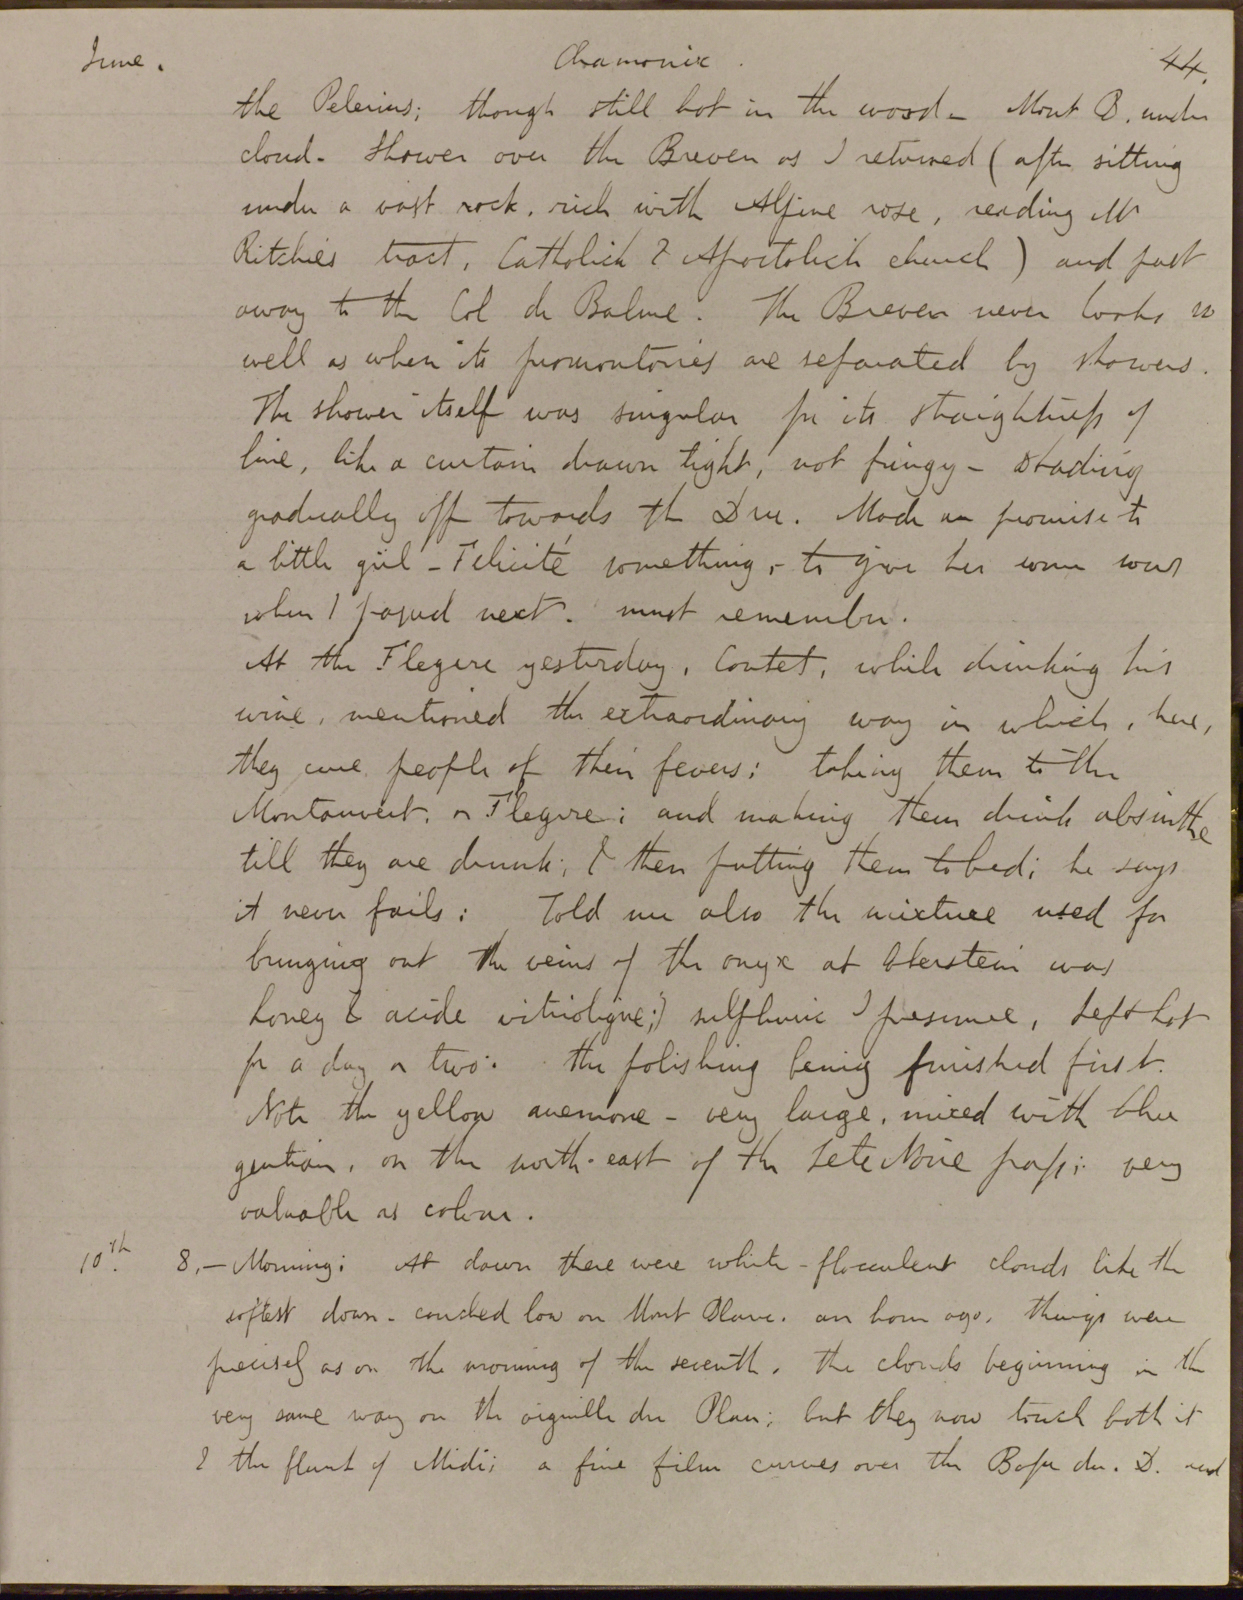 June. Chamonix. 44.
the Pelerins; though still hot in the wood - Mont B. under
cloud. Shower over the Breven as I returned (after sitting
under a vast rock, rich with Alpine rose, reading Mr
Ritchies tract, Catholick & Apostolick church) and past
away to the Col de Balme. The Breven never looks so
well as when its promontories are separated by showers.
The shower itself was singular for its straightness of
line, like a curtain drawn tight, not fringy - shading
gradually off towards the Dru. Made a promise to
a little girl - Felicité something, - to give her some sous
when I passed next. must remember.
At the Flegere yesterday, Coutet, while drinking his
wine, mentioned the extraordinary way in which, here,
they cure people of their fevers; taking them to the
Montanvert, or Flegere; and making them drink absinthe
till they are drunk; & then putting them to bed; he says
it never fails: Told me also the mixture used for
bringing out the veins of the onyx at Oberstein was
honey & acide vitriolique;) sulphuric I presume, left hot
for a day or two: the polishing being finished first.
Note the yellow anemone - very large, mixed with blue
gentian, on the north-east of the Tete Noire pass; very
valuable as colour.
10th. 8, - Morning; At dawn there were white - flocculent clouds like the
softest down - couched low on Mont Blanc. an hour ago, things were
precisely as on the morning of the seventh, the clouds beginning in the
very same way on the aiguille du Plan; but they now touch both it
& the flank of Midi; a fine film curves over the Bosse du. D. and